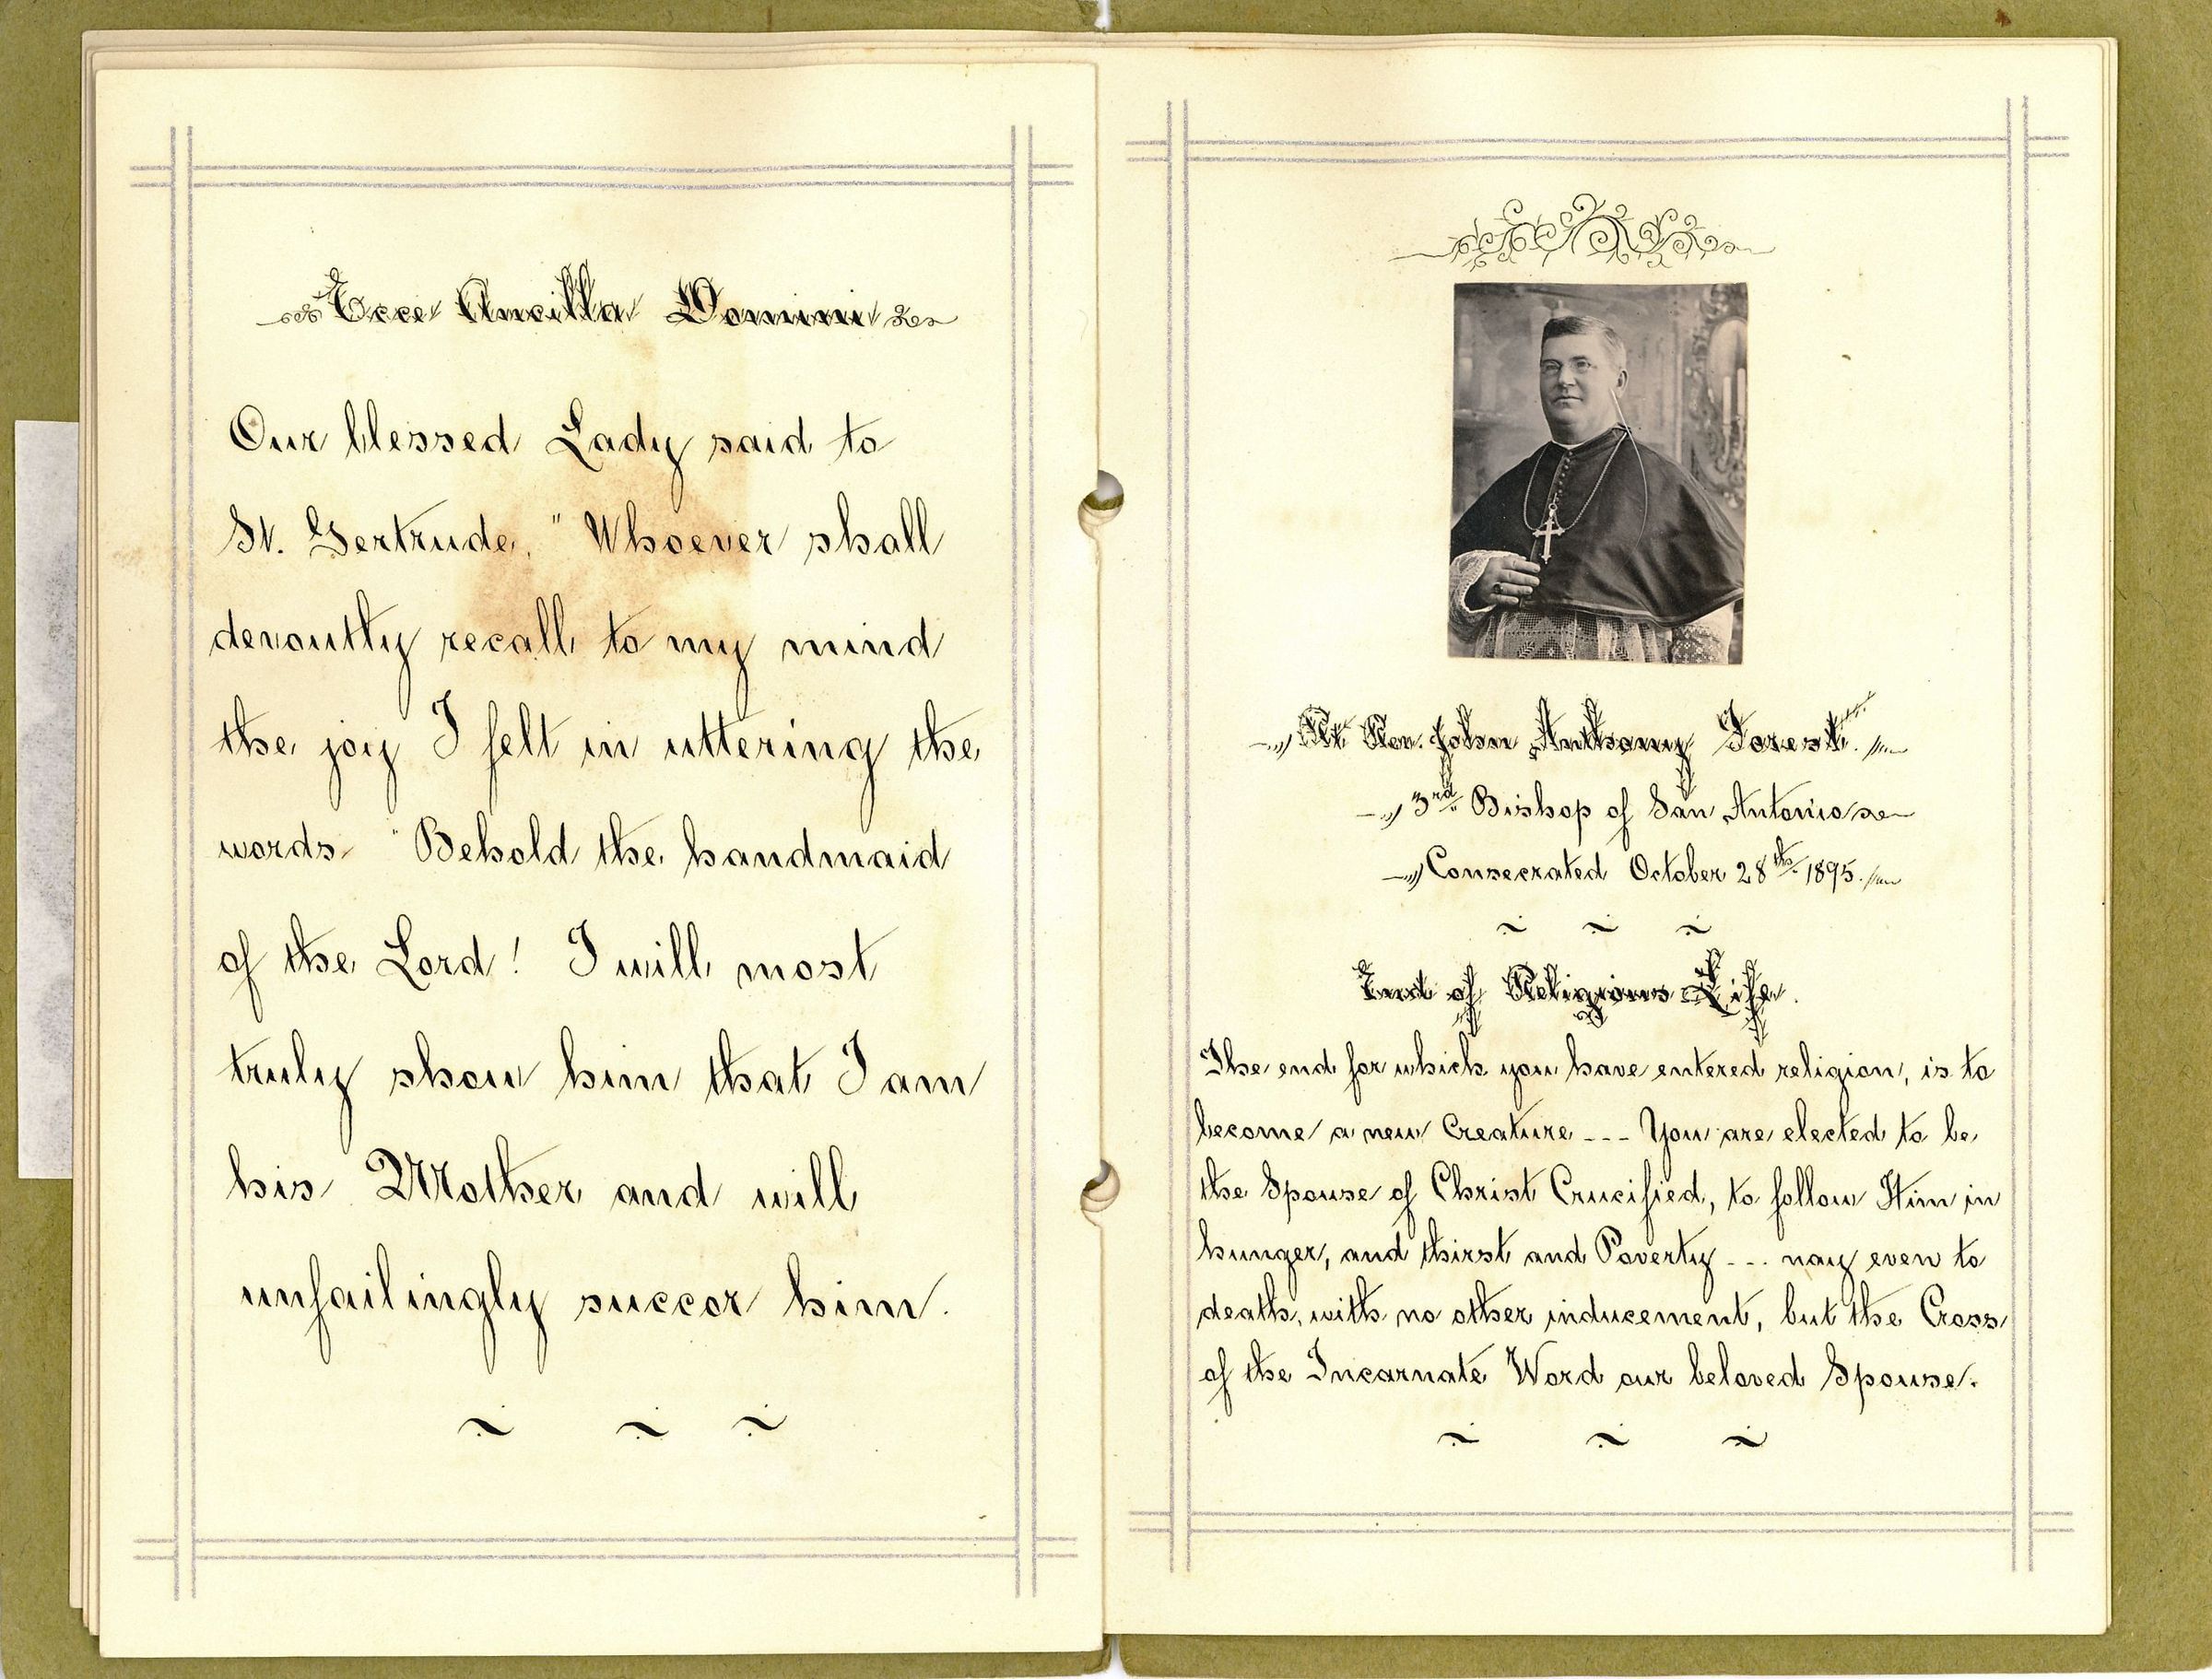 Ecce Ancilla Domini
Our blessed Lady said to
St. Gertrude, "Whoever shall
devoutly recall to my mind
the joy I felt in uttering the
words "Behold the handmaid
of the Lord! I will most
truly show him that I am
his Mother and will
unfailingly succor him.
Rt. Rev. John Anthony Forest.
3rd Bishop of San Antonio
Consecrated October 28th 1895.
End of Religious Life.
The end for which you have entered religion, is to
become a new Creature --- You are elected to be
the Spouse of Christ Crucified, to follow Him in
hunger, and thirst and Poverty --- nay even to
death, with no other inducement, but the Cross
of the Incarnate Word our beloved Spouse.